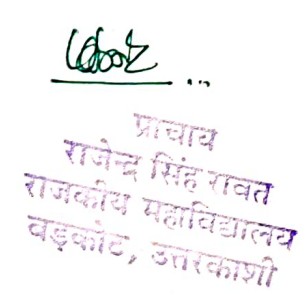 प्राचार्य
राजेन्द्र सिंह रावत
राजकीय महाविद्यालय
वड़कोट, उत्तरकाशी